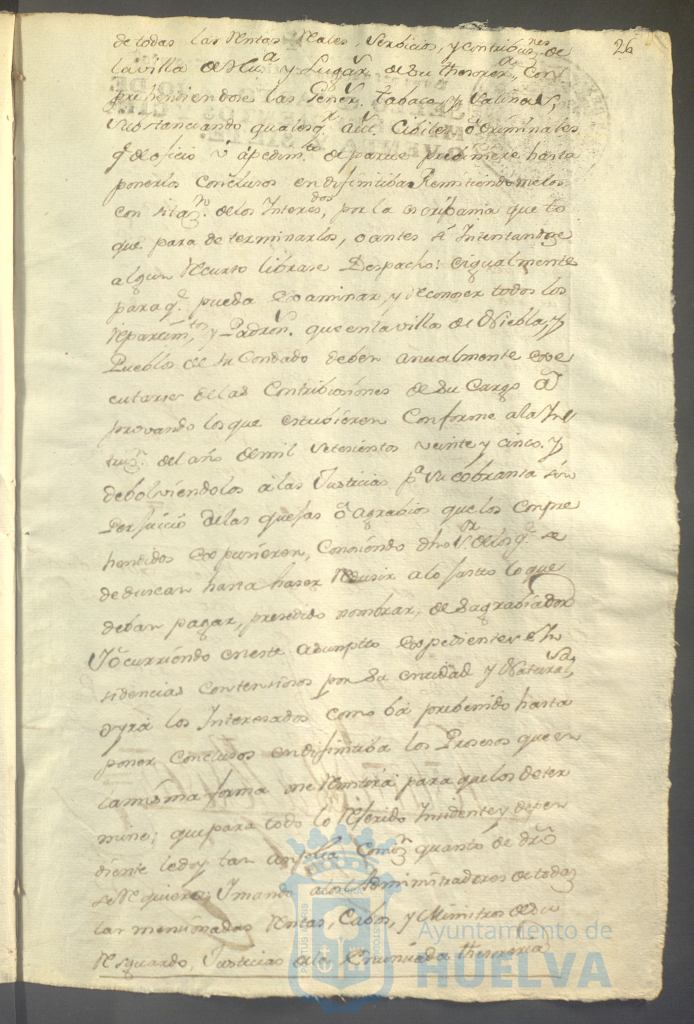 26
de todas las Rentas Reales, Servicios, y Contribu.nes de
la villa de Hu.a y Lugar.s de su thesorer.a, Com
prehendiendose las Gener.s tabaco, y Salinas,
substanciando qualesq.r aut. Cibiles, o Criminales
q.e de oficio ú á pedim.to de parte prebinere hasta
ponerlos Conclusos en difinitiba Remitiendomelos
con sitaz.n de los Interes.dos, por la escribania que to
que para determinarlos, o antes si Intentandose
algun Recurso librase Despacho: e igualmente
para q.e pueda examinar, y reconoser todos los
Repartim.tos y Padron.s que en la villa de Niebla, y
Pueblos de su Condado deben anualmente exe
cutarse de las Contribusiones de su Cargo a
provando los que estubieren Conforme a la Ins
truz.n del año de mil setesientos veinte y cinco, y
debolviendolos a las Justicias p.a su cobranza sin
Perjuicio de las quejas o agrabios que los Compre
hendidos expusieren, Conosiendo dho S.r de los q.e se
dedusean hasta haser Redusir a lo justo lo que
deban pagar, presedido nombrar, desagrabiador
Y ocurriendo en este asumptto Expedientes é In
sidencias contensiosas por su entidad y Naturaz.a,
oyra los Interesados como ba prebenido hasta
poner Conclusos en difinitiba los Prosesos que en
la misma forma me Remitira para que los deter
mine; que para todo lo Referido Insidente y depen
diente le doy tan amplia Comiz.n quanto de dro
se Requiere; Y mando a los Administradores de todas
las mensionadas Rentas, Cabos, y Ministros de su
Resguardo, Justicias de la Enunciada thesoreria
Ayuntamiento de
HUELVA